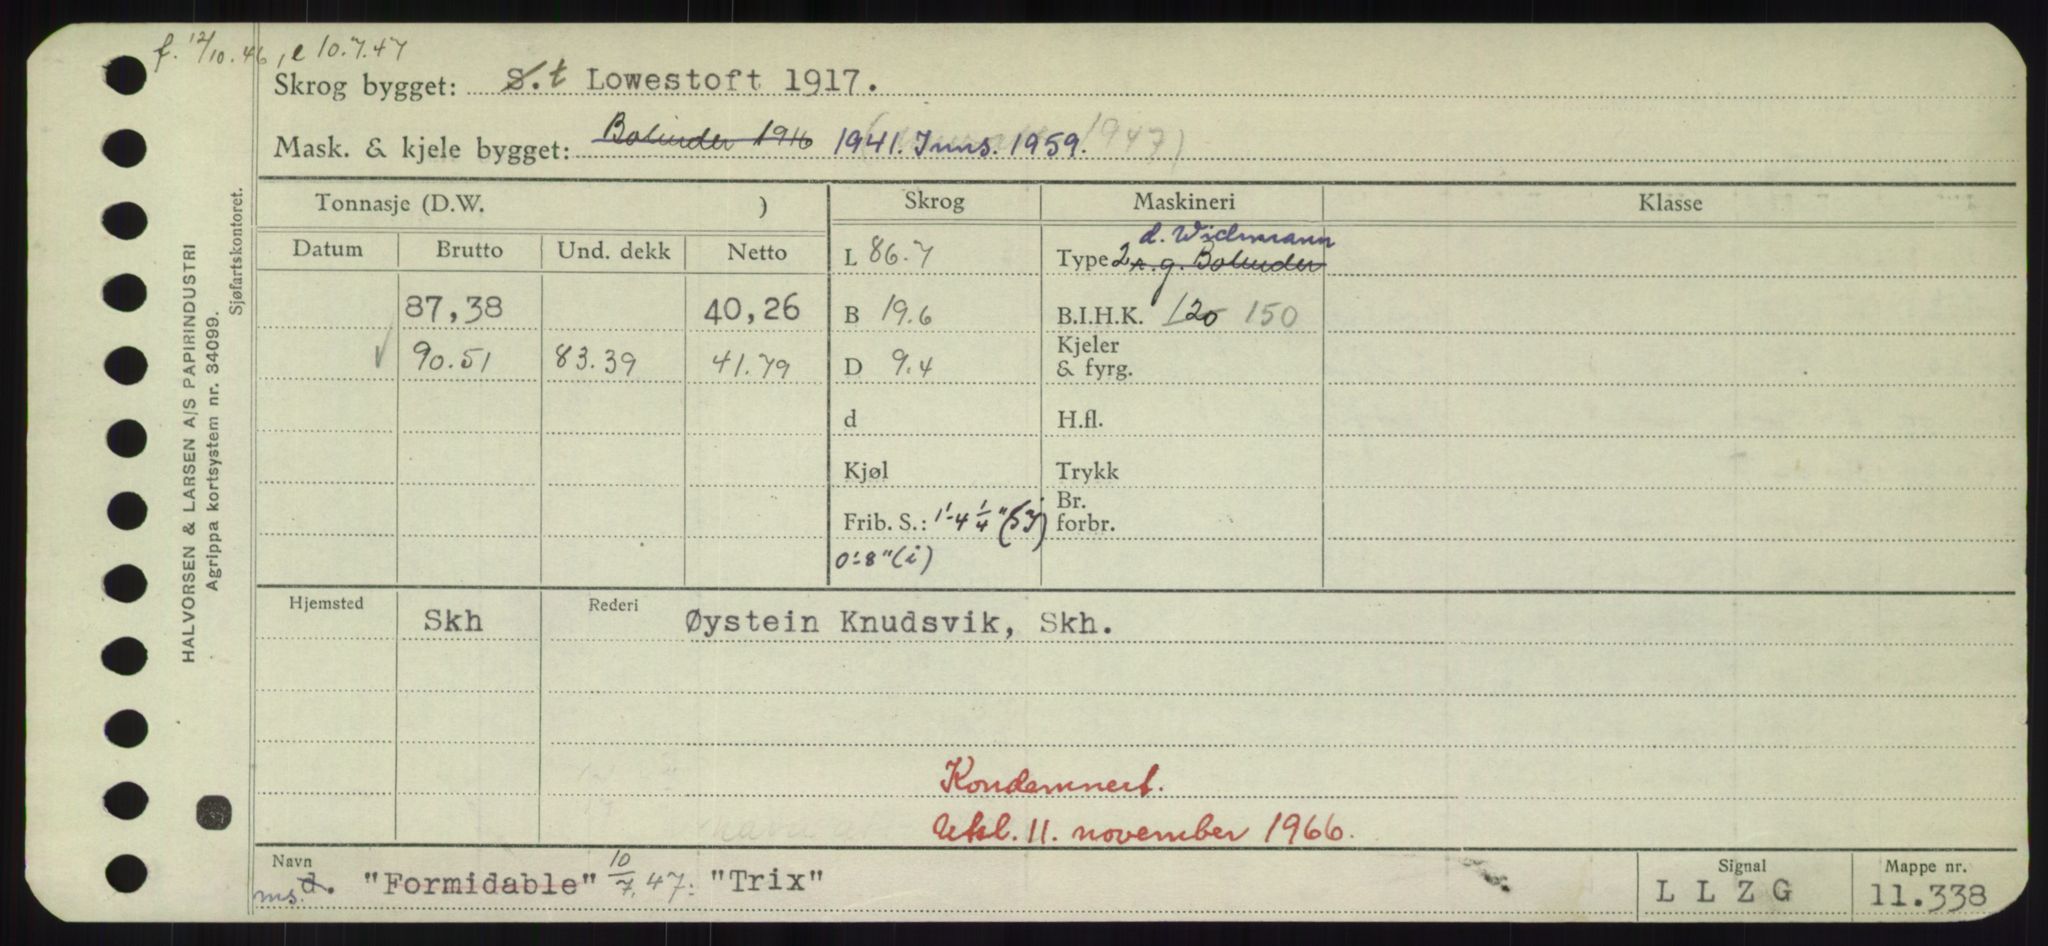 f. 12/10.46, e 10.7.47
Skrog bygget: S.t Lowestoft 1917.
Mask. & kjele bygget: Bolinder 1916 1941. Inns. 1959. 1947)
Tonnasje (D.W. ) Skrog Maskineri Klasse
Datum Brutto Und. dekk Netto L 86.7 Type 2 r.g. Bolinder d. Wichmann
87,38 40,26 B 19.6 B.I.H.K. 120 150
✓ 90.51 83.39 41.79 D 9.4 Kjeler & fyrg.
d H.fl.
Kjøl Trykk
Frib. S.: 1'-4 1/4" Br. forbr.
0'-8" (i)
Hjemsted Skh Rederi Øystein Knudsvik, Skh.
Kondemnert.
Utsl. 11. november 1966.
Navn Signal Mappe nr.
ms. d. "Formidable" 10/7.47: "Trix" L L Z G 11.338
HALVORSEN & LARSEN A/S PAPIRINDUSTRI
Agrippa kortsystem nr. 34099.
Sjøfartskontoret.